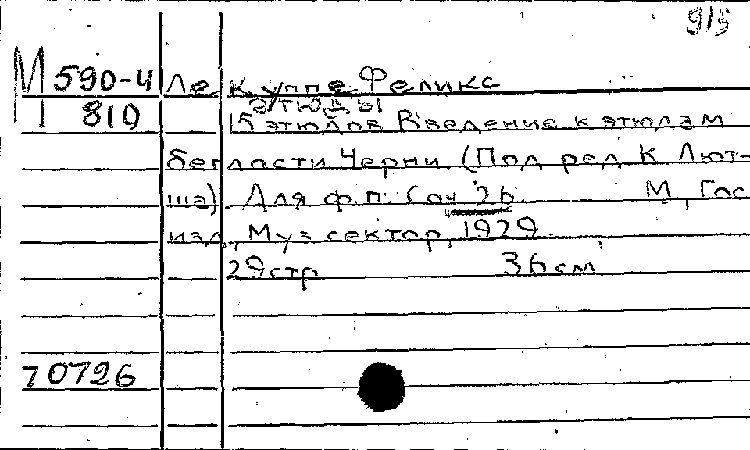 9/9
М 590-4 Ле Куппе Феликс
1 810 Этюды
15 этюдов Введение к этюдам
беглости Черни (Под ред К Лют-
ша) Для ф.п. Соч 26 М, Гос
изд, Муз сектор, 1929
29 стр 36 см
70726